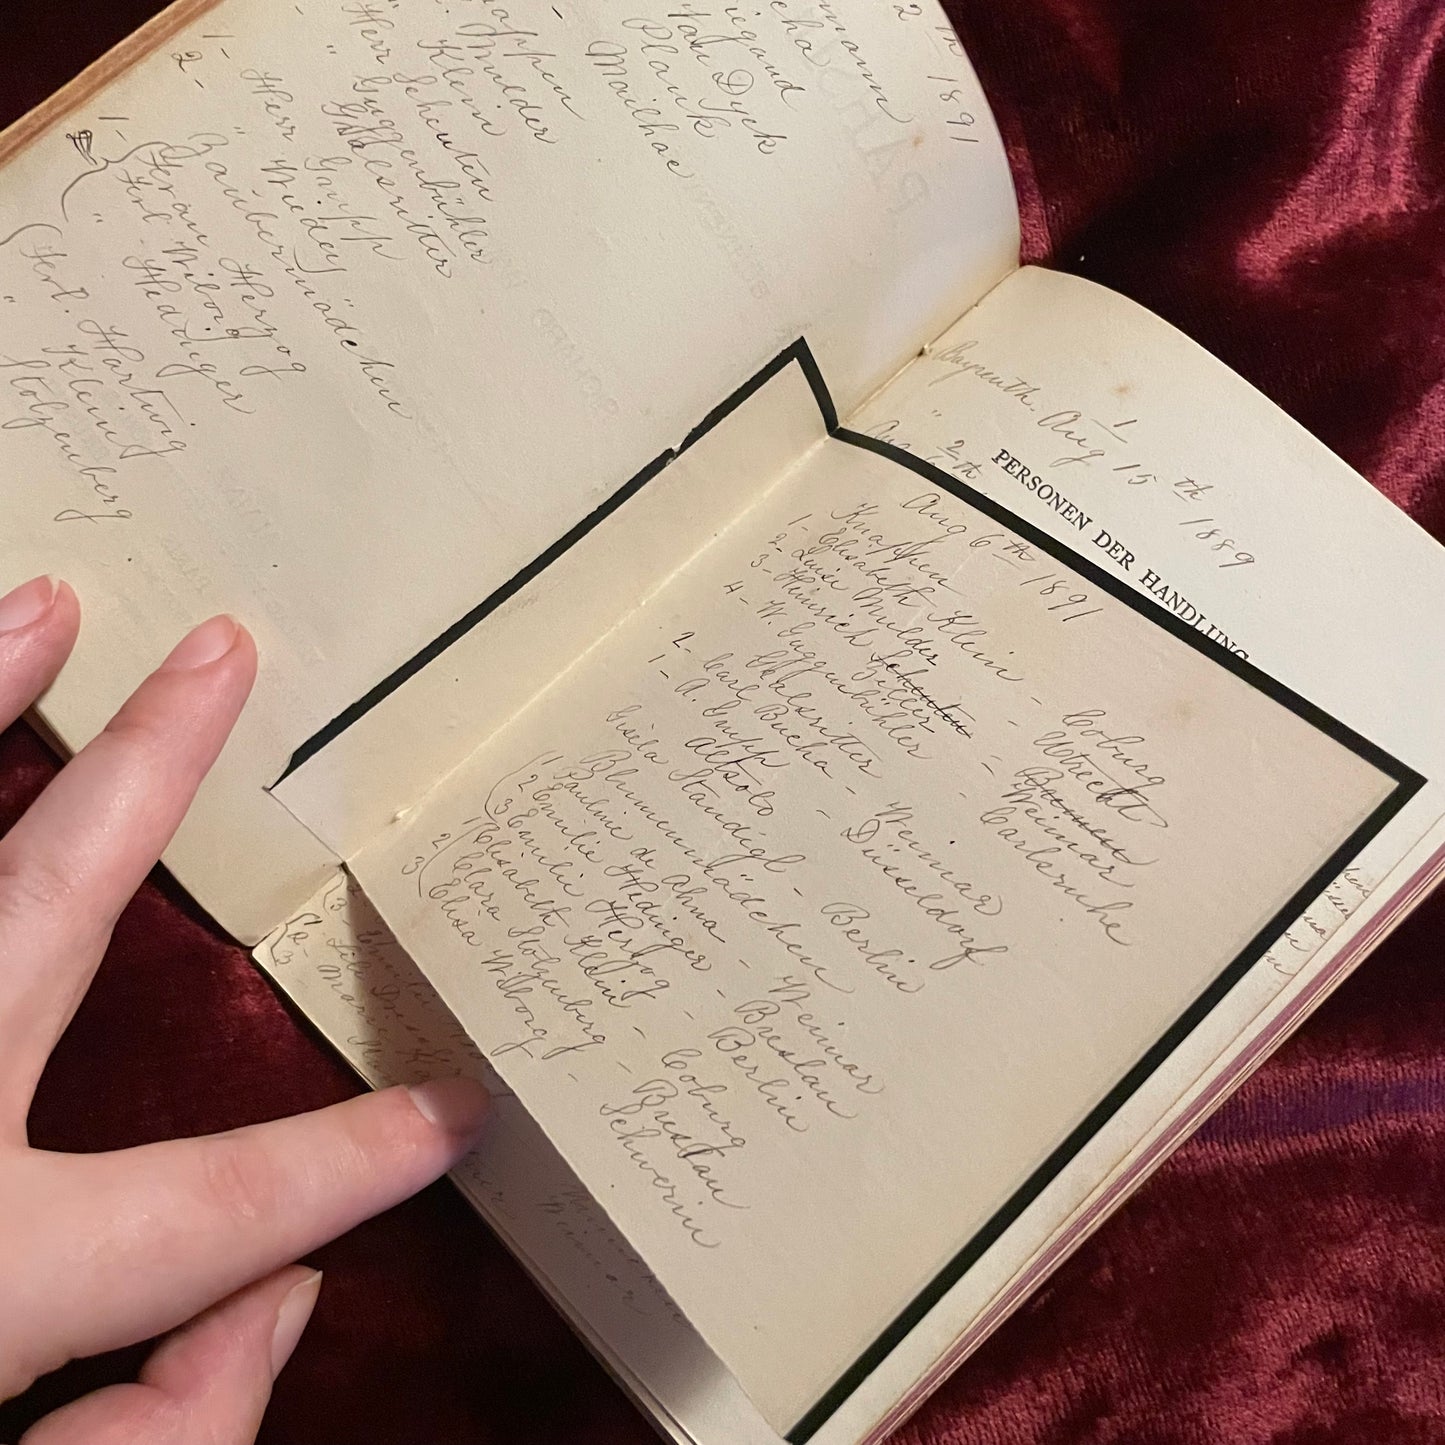 2th 1891
mann
cha
iegand
Van Dyck
Plank
Mailhac
appen
L. Mulder
" Klein
Herr Scheuten
" Guggenbühler
Ghalsritter
1- Herr Grupp
2- " Wiedey
Zaubermädchen
1- Frau Herzog
Frl. Wiborg
" Hediger
Frl. Hartwig
" Klein
Stolzenberg
Bayreuth. Aug 15th 1889
" 1
PERSONEN DER HANDLUNG
2
Aug 6th
Aug 6th 1891
Knappen
1- Elisabeth Klein - Coburg
2- Luise Mulder - Utrecht
3- Heinrich Scheuten Zeller - Bremen Weimar
4- W. Guggenbühler - Carlsruhe
Ghalsritter
2- Carl Bucha - Weimar
1- A. Grupp - Düsseldorf
Altsolo
Gisela Staudigl - Berlin
Blumenmädchen
1 Pauline de Ahna - Weimar
2 Emilie Hediger - Breslau
3 Emilie Herzog - Berlin
1 Elisabeth Klein - Coburg
2 Clara Stolzenberg - Breslau
3 Elisa Wiborg - Schwerin